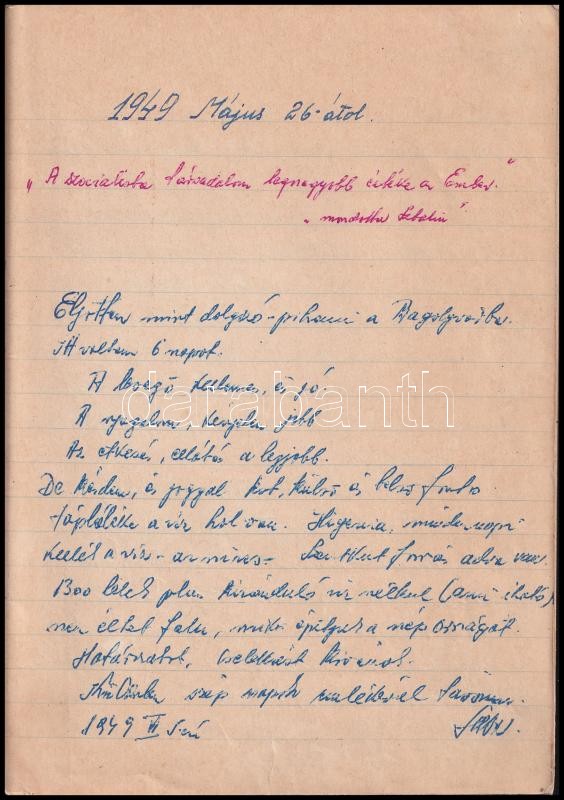 1949 Május 26-ától.
"A szocialista társadalom legnagyobb értéke az Ember."
"mondotta
Eljöttem mint dolgozó-pihenni a Bagolyvárba.
Itt voltam 6 napot.
A levegő kellemes, és jó.
A nyugalom, kényelem jobb
Az étkezés, ellátás a legjobb.
De kérdem, és joggal külső és belső fontos
tápláléka a víz hol van. Higenia, mindennapi
kellék a víz - az nincs - forrás adva van.
1300 lélek plus kiránduló víz nélkül (ami iható)
nem élhet falu, mikor építjük a nép országát.
Határozatot, cselekvést kívánok.
szép napok emlékével távozom.
1949 VI 1-én
darabanth